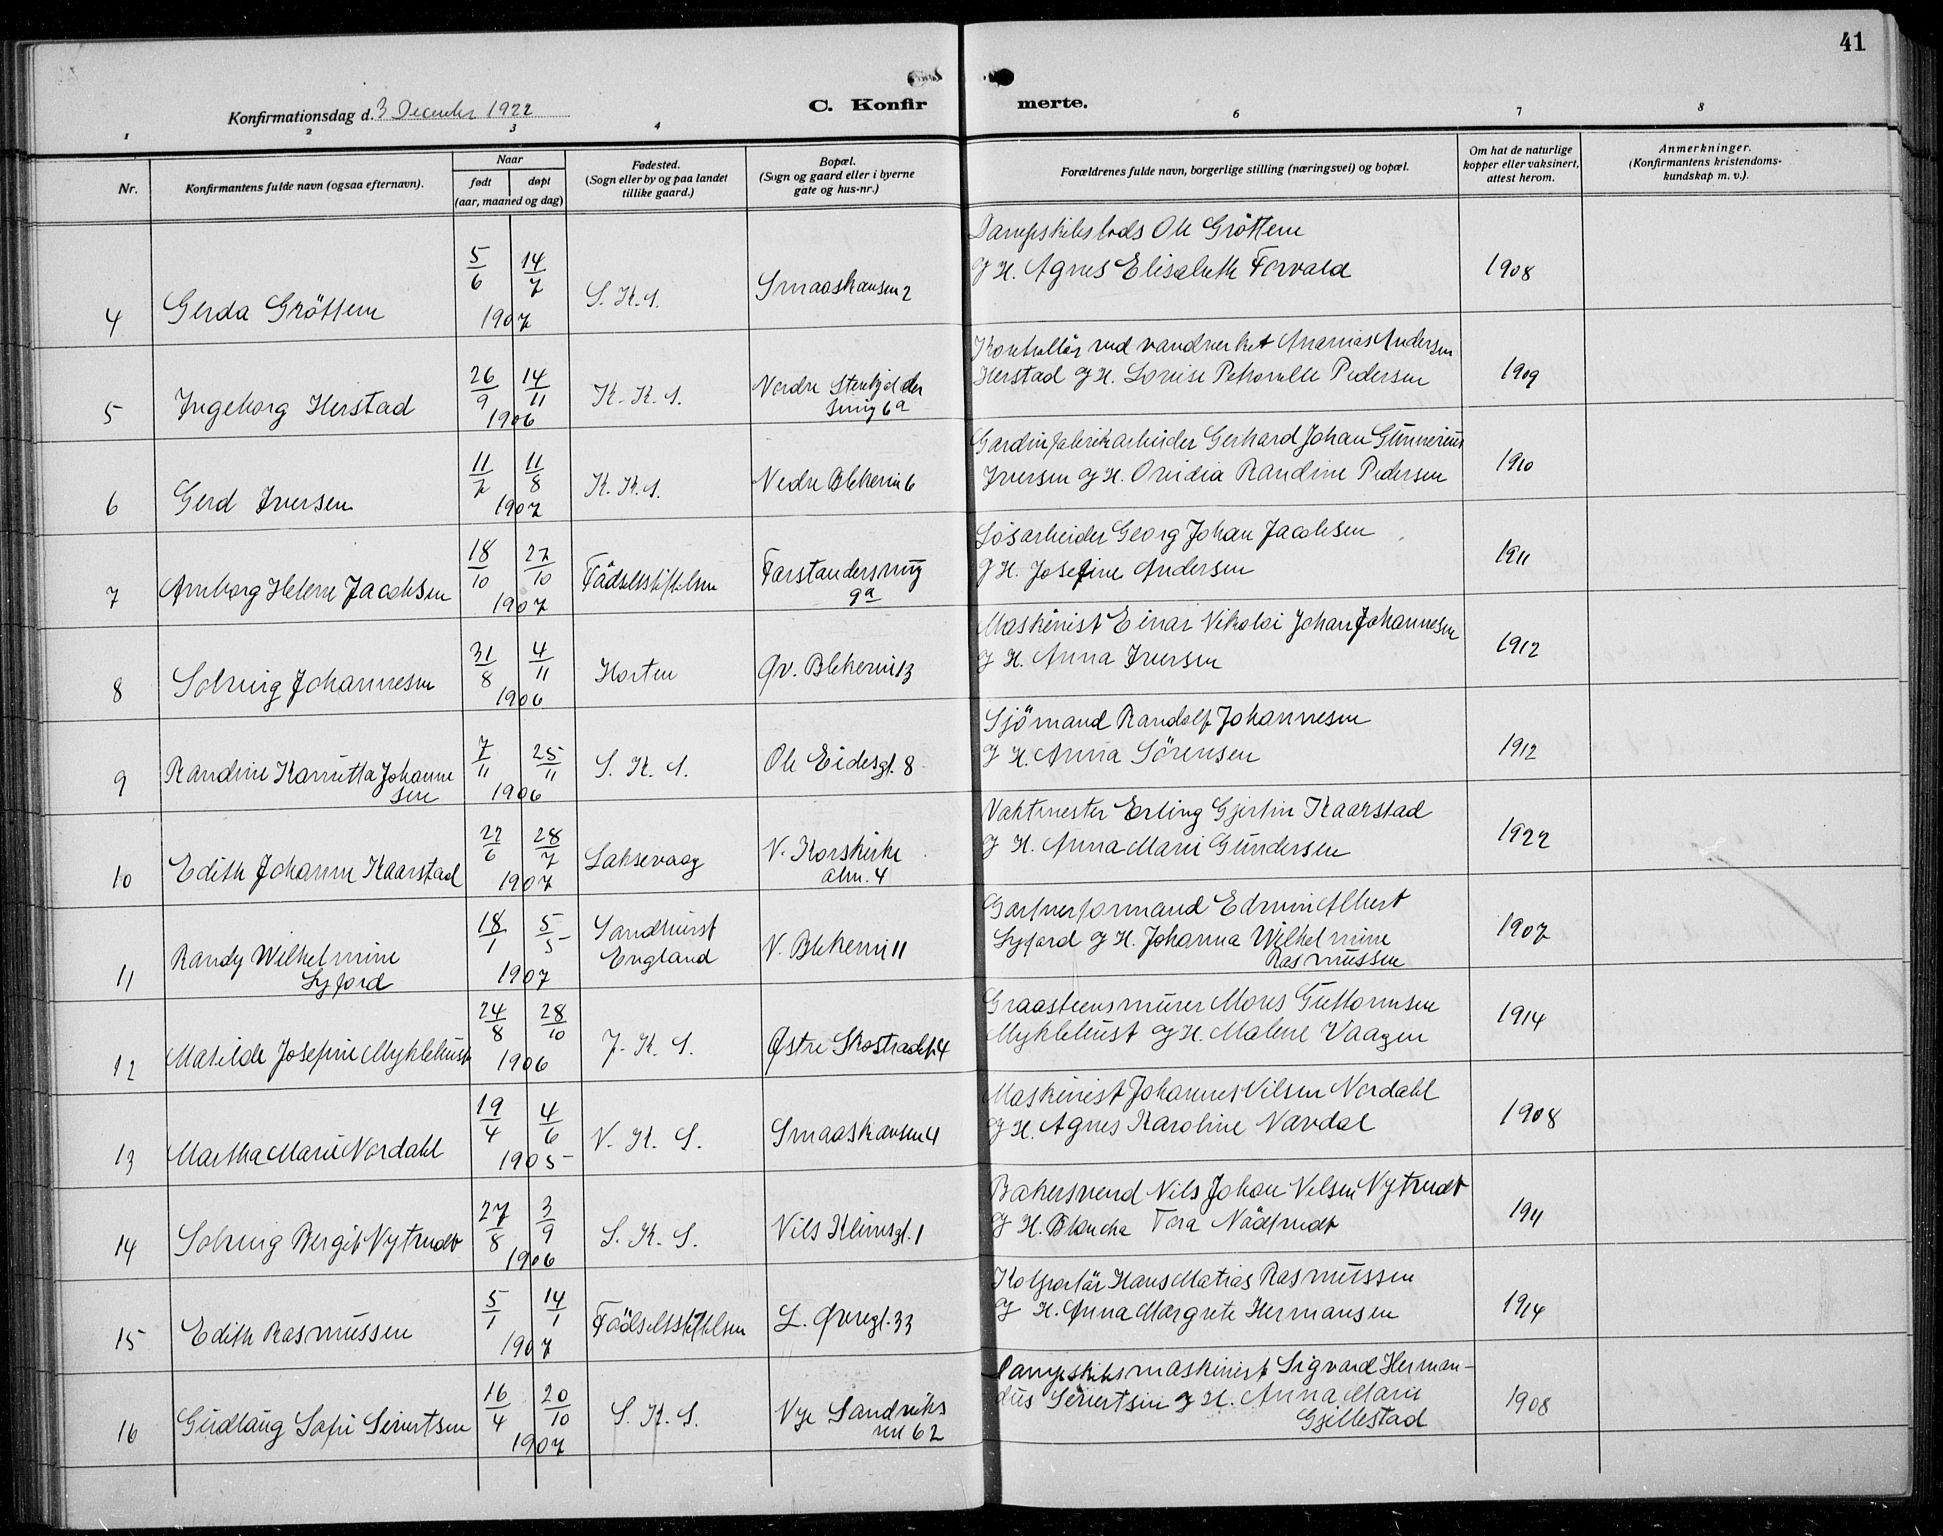 41
Konfirmationsdag d. 3 December 1922
C. Konfir merte.
1 2 3 4 6 7 8
Nr.
Konfirmantens fulde navn (ogsaa efternavn).
Naar
født
døpt
(aar, maaned og dag)
Fødested.
(Sogn eller by og paa landet
tillike gaard.)
Bopæl.
(Sogn og gaard eller i byerne
gate og hus-nr.)
Forældrenes fulde navn, borgerlige stilling (næringsvei) og bopæl.
Om hat de naturlige
kopper eller vaksinert,
attest herom.
Anmerkninger.
(Konfirmantens kristendoms-
kundskap m. v.).
4 Gerda Gröttem 5/6 14/7 1907 S. K. S. Smaaskansen 2
Dampskibslods Ole Gröttem
g H. Agnes Elisabeth Forvald 1908
5 Ingeborg Herstad 26/9 14/11 1906 K. K. S. Nordre Stenkjelder
smug 6a
Kontrollör ved vandverket Ananias Andersen
Herstad g H. Lovise Petronelle Pedersen 1909
6 Gerd Iversen 11/7 11/8 1907 K. K. S. Nedre Blekevei 6
Gardinfabrikarbeider Gerhard Johan Gunnerius
Iversen g H. Ovidia Randine Pedersen 1910
7 Arnborg Helene Jacobsen 18/10 27/10 1907 Födselsstiftelsen Forstandersmug
9a
Løsarbeider Georg Johan Jacobsen
g H. Josefine Andersen 1911
8 Solveig Johannesen 31/8 4/11 1906 Horten Øv. Blekevei 13
Maskinist Einar Nikolai Johan Johannesen
g H. Anna Iversen 1912
9 Randine Hanretta Johanne
sen 7/11 25/11 1906 S. K. S. Ole Eidesgt. 8
Sjömand Randolf Johannesen
g H. Anna Sörensen 1912
10 Edith Johanne Kaarstad 22/6 28/7 1907 Laksevaag N. Korskirke
alm. 4
Vaktmester Erling Gjertin Kaarstad
g H. Anna Marie Gundersen 1922
11 Randy Wilhelmine
Lyford 18/1 5/5 1907 Sandhurst
England N. Blekevei 11
Gartnerformand Edwin Albert
Lyford g H. Johanna Wilhelmine
Rasmussen 1907
12 Matilde Josefine Myklebust 24/8 28/10 1906 J. K. S. Østre Skostrædet 4
Graasteensmurer Mons Guttormsen
Myklebust g H. Malene Vaagen 1914
13 Martha Marie Nordahl 19/4 4/6 1905 N. K. S. Smaaskansen 4
Maskinist Johannes Nilsen Nordahl
g H. Agnes Karoline Navdal 1908
14 Solveig Bergit Nytrudt 27/8 3/9 1906 S. K. S. Nils Klimsgt. 1
Bakersvend Nils Johan Nilsen Nytrudt
g H. Blancha Tora Nödtvedt 1911
15 Edith Rasmussen 5/1 14/1 1907 Födselsstiftelsen L. Øvregt. 33
Kolportör Hans Matias Rasmussen
g H. Anna Margrete Hermansen 1914
16 Gudlaug Sofie Sivertsen 16/4 20/10 1907 S. K. S. Nye Sandviks
vei 62
Dampskibsmaskinist Sigvard Herman-
dus Sivertsen g H. Anna Marie
Gjellestad 1908